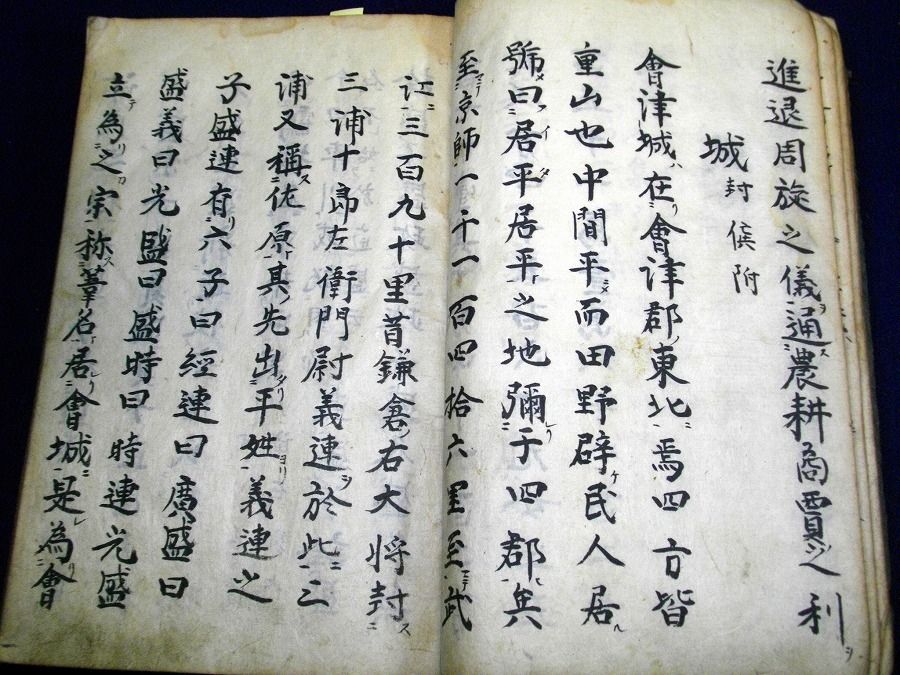 進退周旋之儀通農耕商賈之利
城 封侯附
會津城在會津郡東北焉四方皆
重山也中間平而田野辟民人居
號曰居平居平之地彌于四郡矣
至京師一千一百四拾六里至武
江三百九十里昔鎌倉右大将封
三浦十郎左衛門尉義連於此三
浦又稱佐原其先出平姓義連之
子盛連有六子曰經連曰廣盛曰
盛義曰光盛曰盛時曰時連光盛
立為之宗称葦名居會城是為會